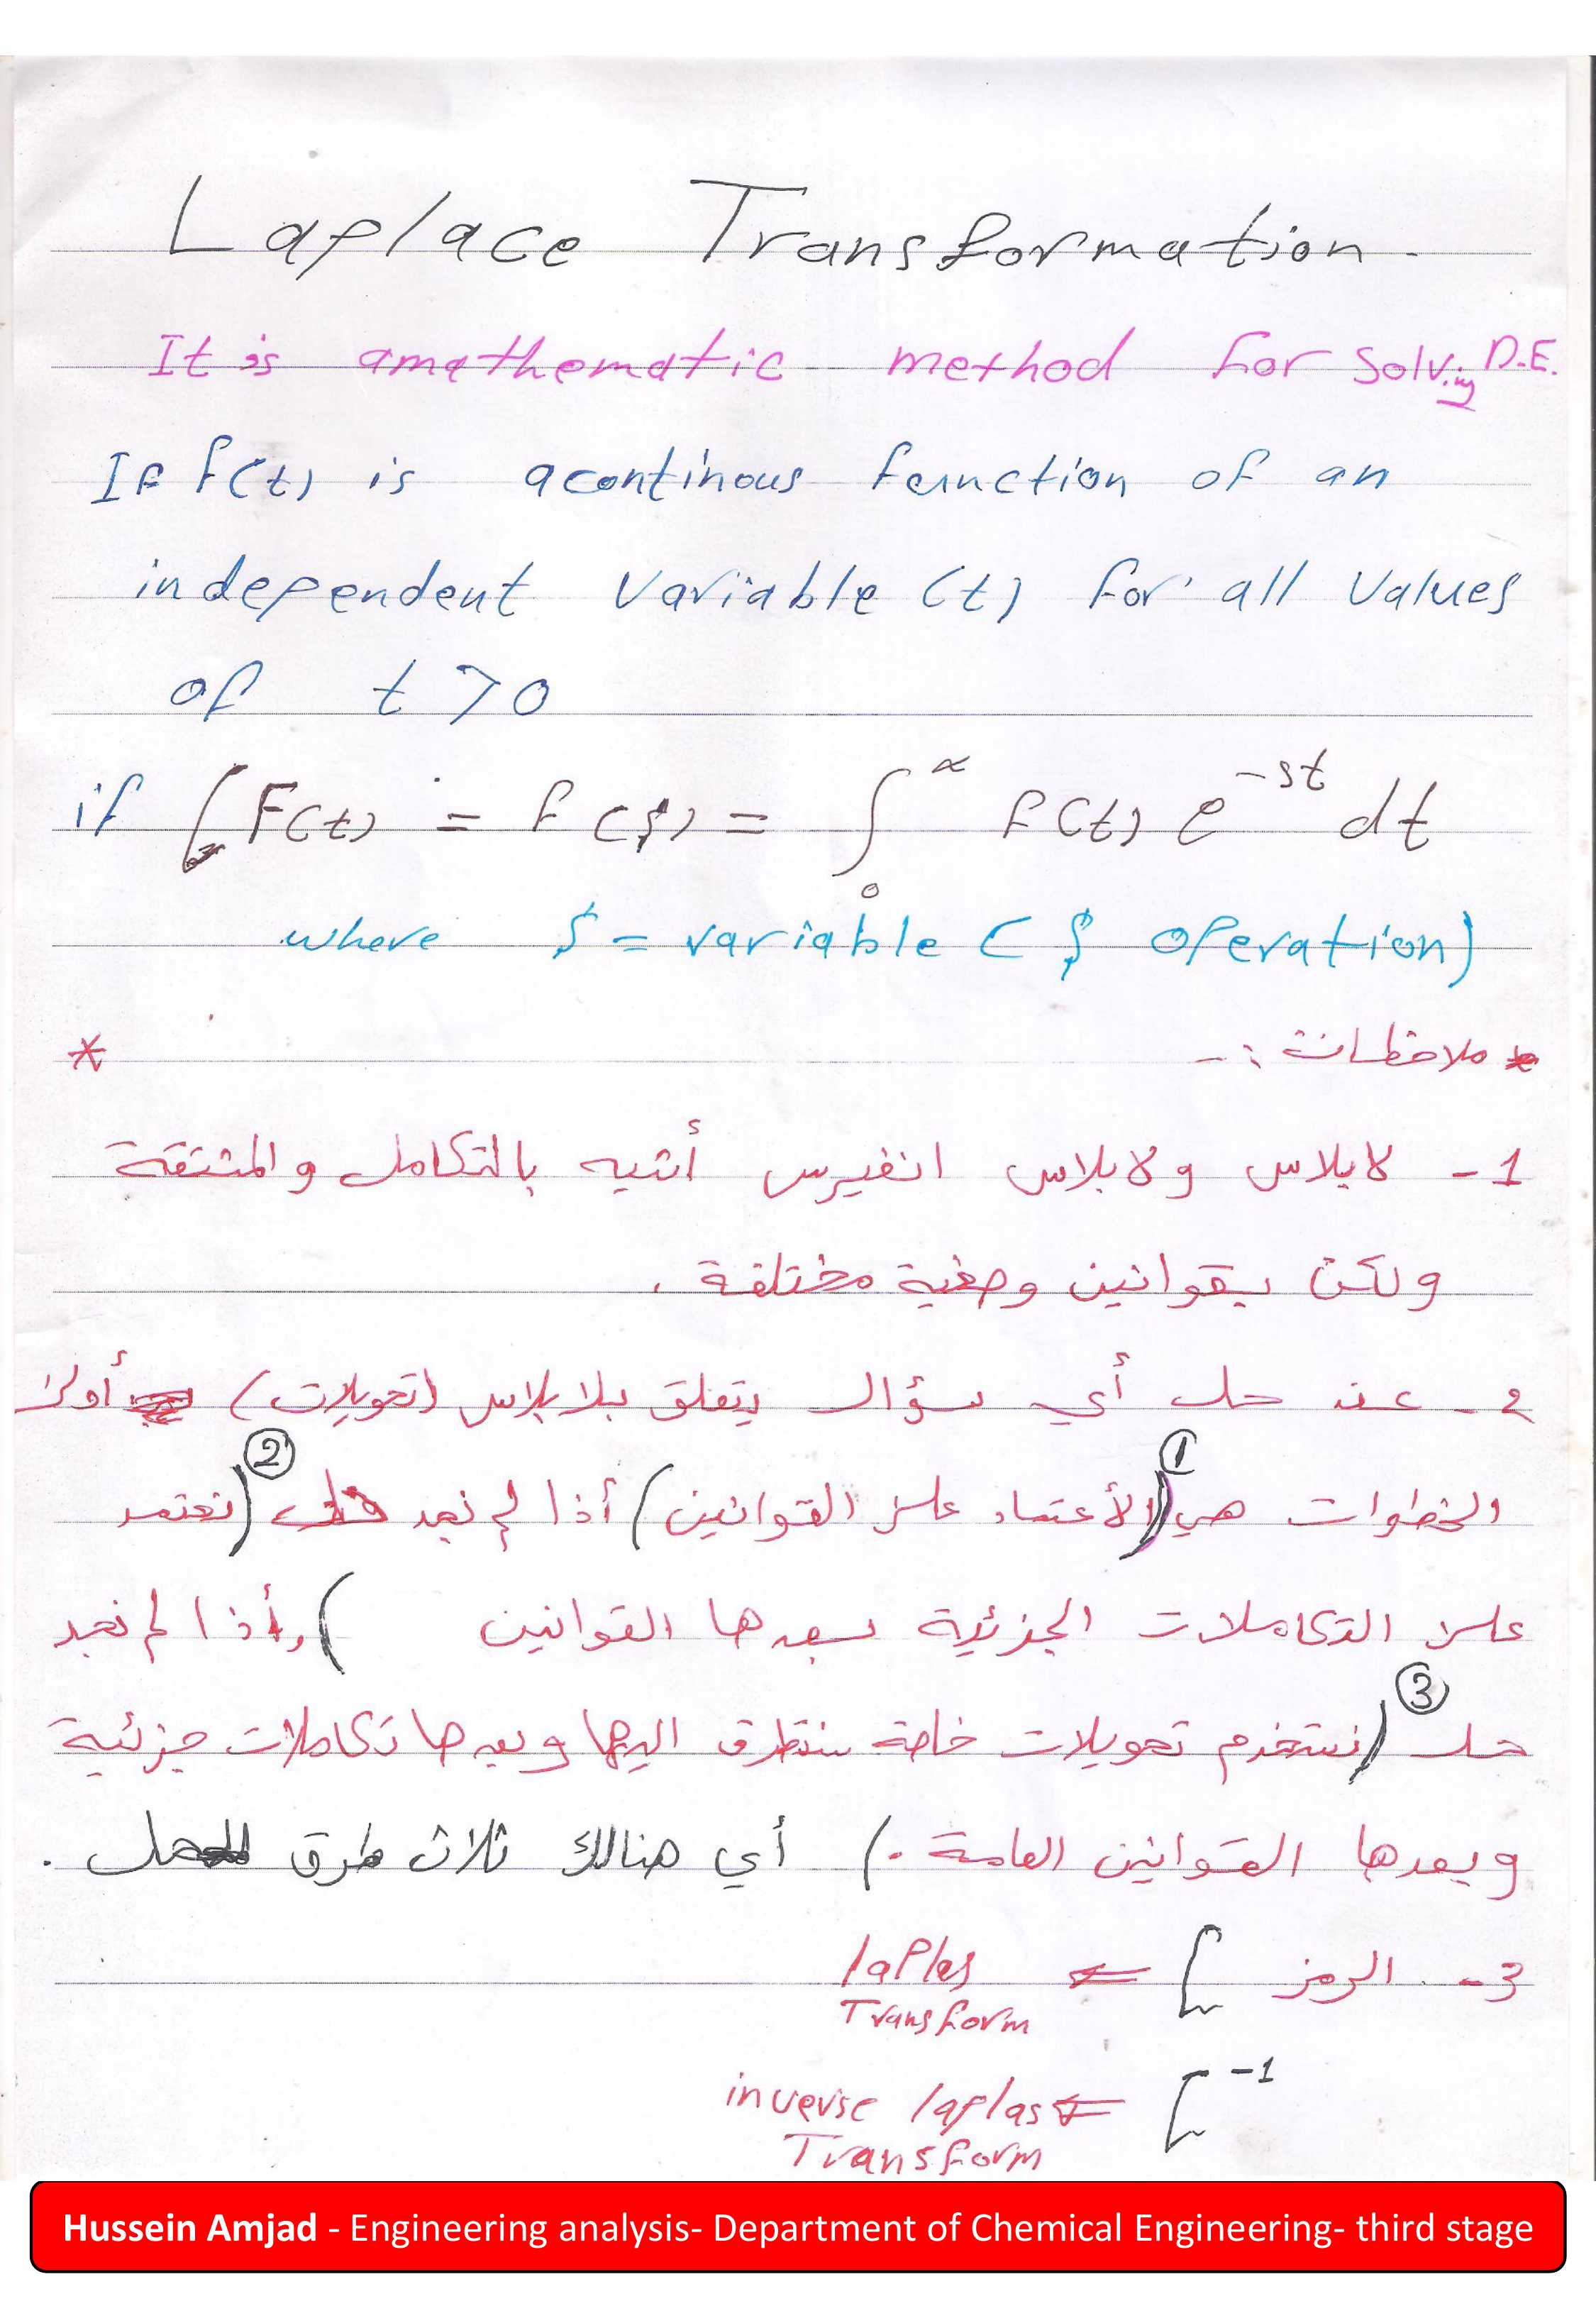 Laplace Transformation.
It is amathematic method for Solving D.E.
If f(t) is acontinous function of an
independent variable (t) for all values
of t > 0
if L F(t) = f(s) = ∫₀^∝ f(t) e^-st dt
where s = variable (s operation)
* ملاحظات :- *
1- لابلاس ولابلاس انفيرس أشبه بالتكامل والمشتقة
ولكن بقوانين وصغية مختلفة .
2- عند حل أي سؤال يتعلق بلابلاس (تحويلات) أولى
الخطوات هي ①(الأعتماد على القوانين) أذا لم نجد حل ②(نعتمد
على التكاملات الجزئية بعدها القوانين ) وأذا لم نجد
حل ③(نستخدم تحويلات خاصة سنتطرق اليها وبعدها تكاملات جزئية
وبعدها القوانين العامة .) أي هنالك ثلاث طرق للحل .
3- الرمز L ⇐ laples
Transform
L^-1 ⇐ inverse laplas
Transform
Hussein Amjad - Engineering analysis- Department of Chemical Engineering- third stage